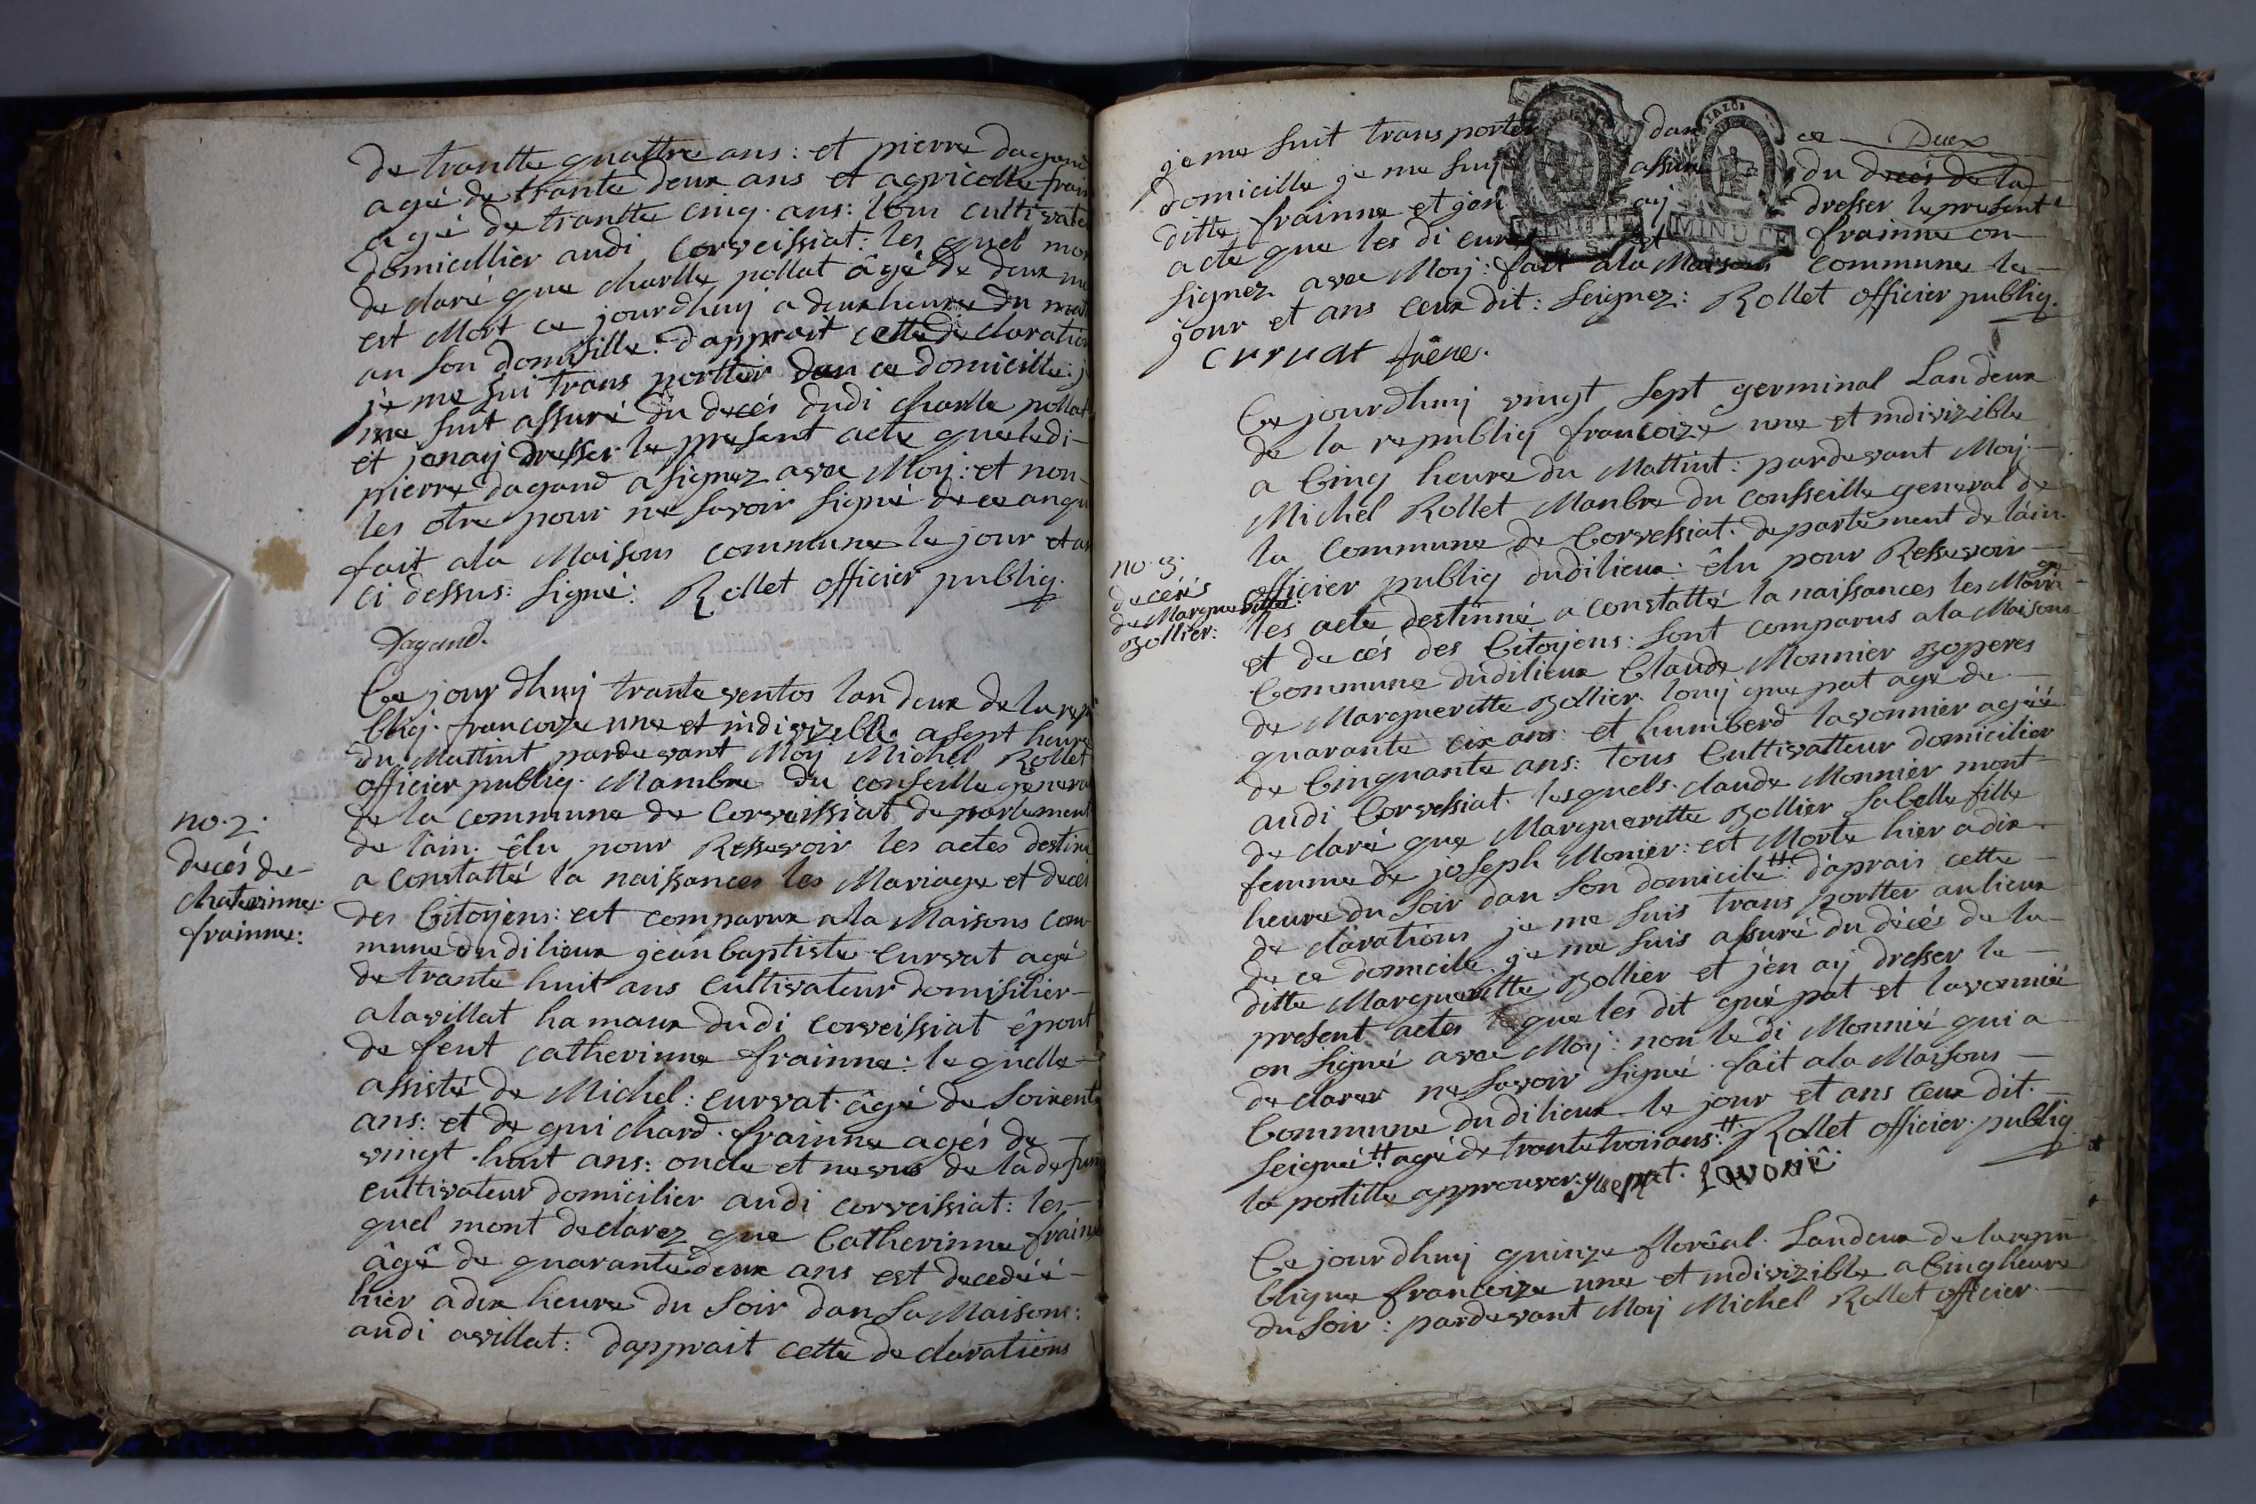 de trantte quattre ans : et pierre dagand
agé de trante deux ans et agricolle frain
agé de trantte cinq ans : tou cultivate
domicillier audi corveissiat : les quel mon
de claré que charlle pollat âgé de deux
est Mort ce jourdhuij a deux heure du mat
an son domisille : dapprait cette de claration
je me sui trans portter dan ce domicille : j
me suit assuré du decés dudi charlle pollat
et jenaij dresser le present acte que ledi-
pierre dagand a signez avec Moij : et non-
les otre pour ne savoir signé de ce anqu
fait ala Maisons commune le jour et an
ci dessus : signé : Rollet officier publiq.
Dagand.
Ce jour dhuij trante ventos lan deux de la repu
bliq. francoize une et indivizible a sept heure
du Mattint parde vant Moij Michel Rollet
officier publiq. Manbre du conseille genera
de la commune de Corveissiat de partement
de lain. élu pour Ressevoir les actes destiné
a constatté la naissances les Mariage et decés
des Citoijens : est comparux ala Maisons com-
mune dudilieux jean baptiste curvat agé
de trante huit ans cultivateur domisilier-
alavillat hamaux dudi corveissiat époux
de feut catherinne frainne : le quelle-
assisté de Michel : curvat. âgé de soixente
ans : et de guichard. frainne agés de
vingt. huit ans : oncle et neveus de la defun
cultivateur domicilier audi corveissiat : les-
quel mont declarez que Catherinne frainne
âgé de quarante deux ans est decedéé-
hier adix heure du soir dan sa Maisons :
audi avillat : dapprait cette de clarations
no. 2.
decés de-
chaterinne-
frainne :
je me suit trans portter dan ce Deux
domicille je me suij assure du decés de la
ditte frainne et jen aij dresser le present
acte que les di cur et frainne on-
signez avec Moij : fait ala Maisons commune le-
jour et ans ceux dit : seignez : Rollet officier publiq.
curvat frêne.
Ce jourdhuij vingt sept germinal Lan deux
de la republiq francoize une et indivizible
a Cinq heure du Mattint : pardevant Moij-
Michel Rollet Manbre du consseille general de
la commune de Corvessiat. de partement de láin.
officier publiq dudilieux : élu pour Ressevoir-
les acte destinné a constatté la naissances les Mariage
et de cés des Citoijens : sont comparus ala Maisons
Commune dudilieux Claude Monnier
de Margueritte Bollier. louij gue pat agé de-
quarante cix ans : et humberd lavonnier agéé
de Cinquante ans : tous Cultivatteur domicilier
audi Corvessiat. lesquels. claude Monnier mont-
de claré que Margueritte Bollier sa belle fille
femme de joseph Monier : est Morte hier adix-
heure du soir dan son domicile # d'aprais cette-
de clârations je me suis trans portter aulieux
de ce domicile je me suis assuré du décés de la-
ditte Margueritte Bollier et j'en aij dresser le-
present actes que les dit gué pat et lavonnié
on signé avec Moij : non le di Monnié qui a-
declarer ne savoir signé. fait ala Maisons-
Commune dudilieux le jour et ans ceux dit.-
seigné # agé de trante troisans : # Rollet officier. publiq
la postille approuver. guepat. Lavoniê.
no. 3.
decérs
de Margueritte
Bollier :
Ce jourdhuij quinze floréal. Landeux de la repu
blique francoize une et indivizible a Cinq heure
du soir : pardevant Moij Michel Rollet officier.-
MINUTE
MINUTE